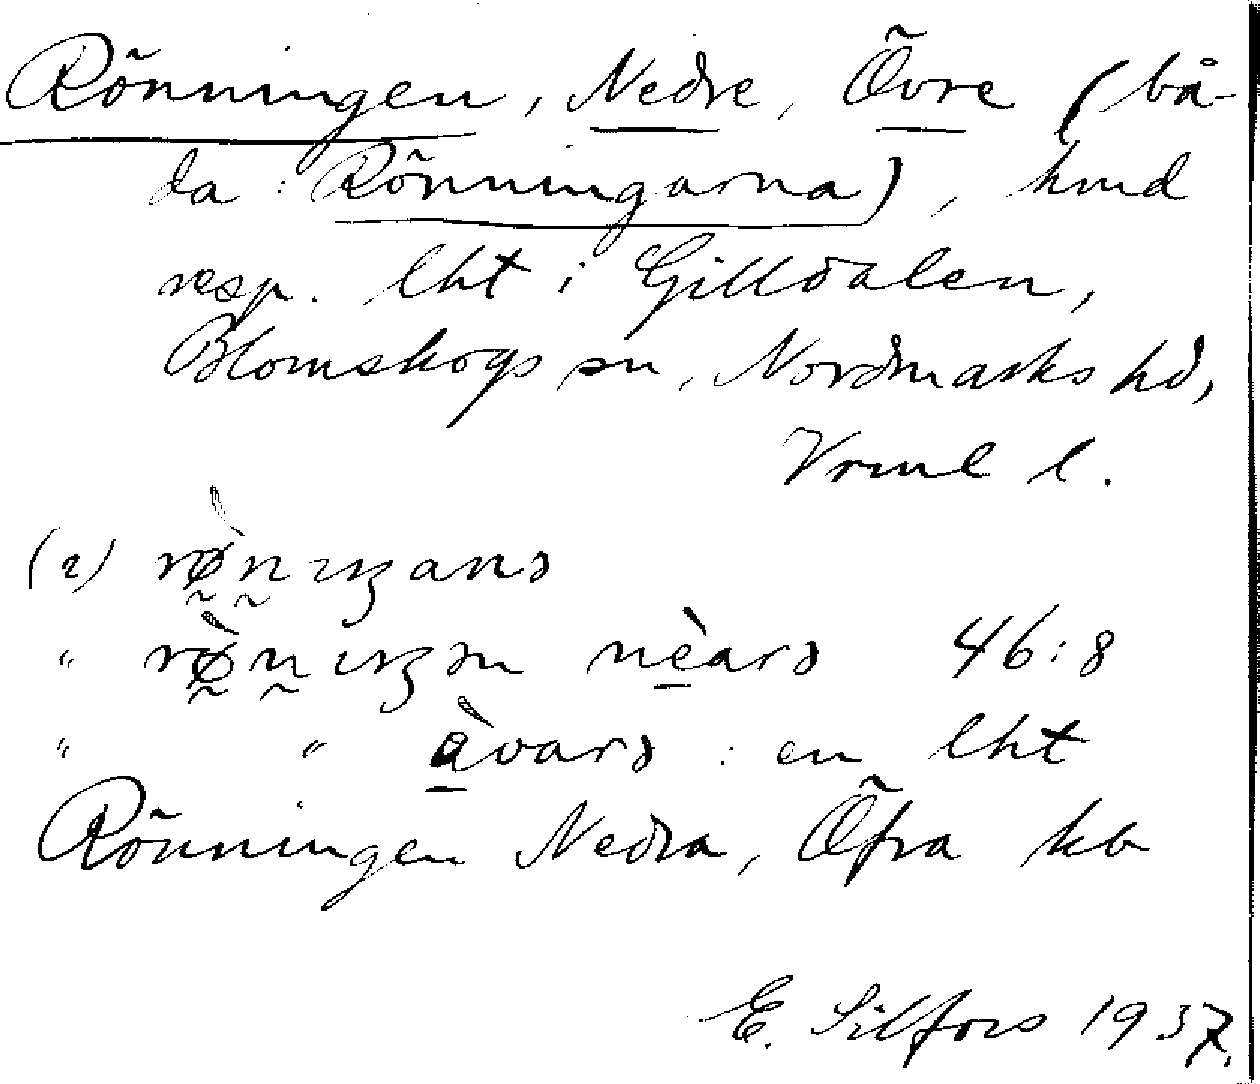 Rönningen, Nedre, Övre (bå-
da: Rönningarna), hmd
resp. lht i Gilldalen,
Blomskogs sn, Nordmarks hd,
Vrml l.
(2) rø̀nıŋanə
" rø̀nıŋən nèarə 46:8
" " àvarə : en lht
Rönningen Nedra, Öfra kb
E. Silfors 1937.